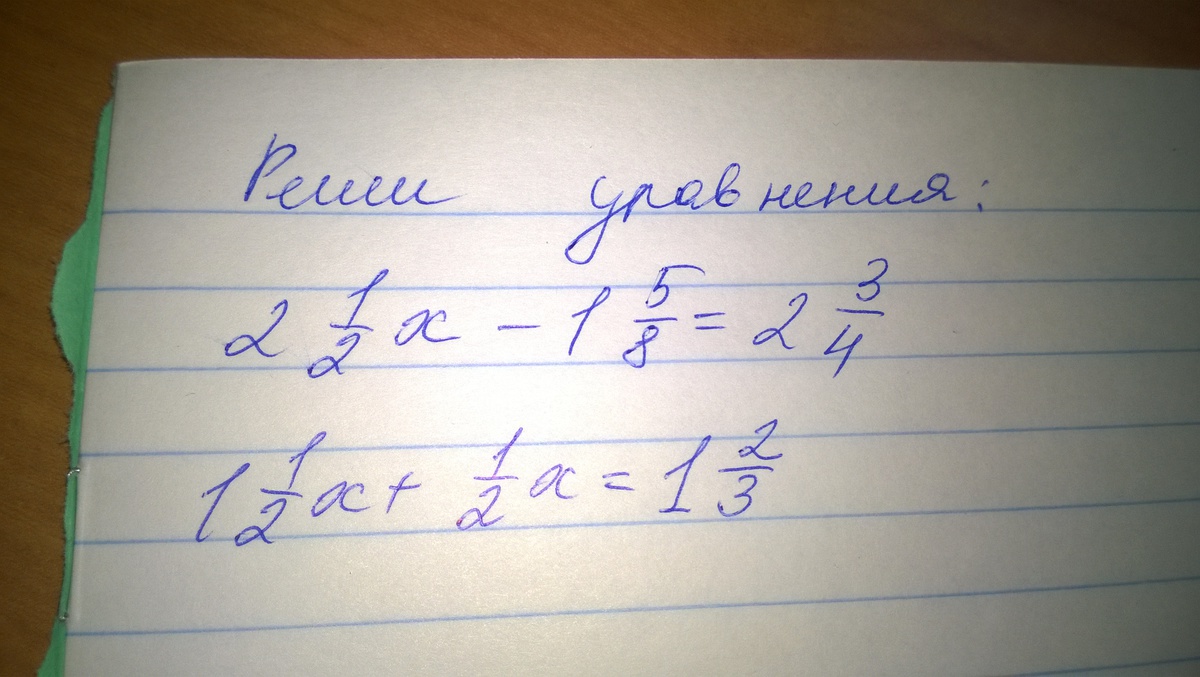 Реши уравнения:
2 1/2 x - 1 5/8 = 2 3/4
1 1/2 x + 1/2 x = 1 2/3